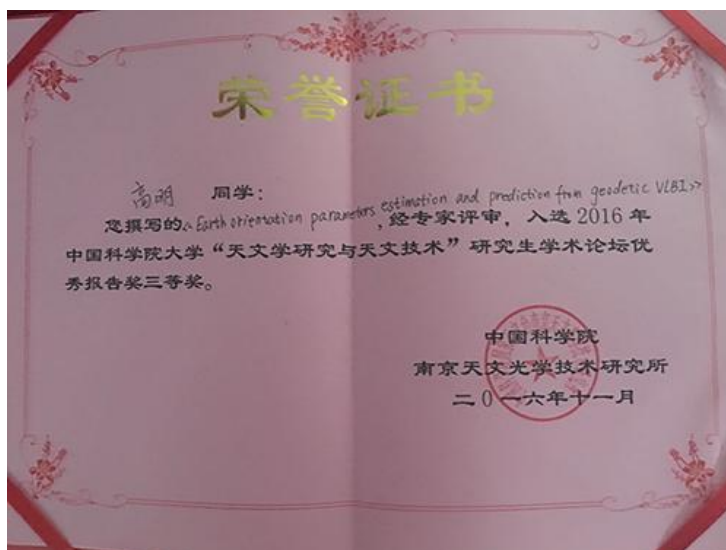 荣誉证书
高明 同学：
您撰写的《Earth orientation parameters estimation and prediction from geodetic VLBI》，经专家评审，入选 2016 年
中国科学院大学“天文学研究与天文技术”研究生学术论坛优
秀报告奖三等奖。
中国科学院
南京天文光学技术研究所
二0一六年十一月